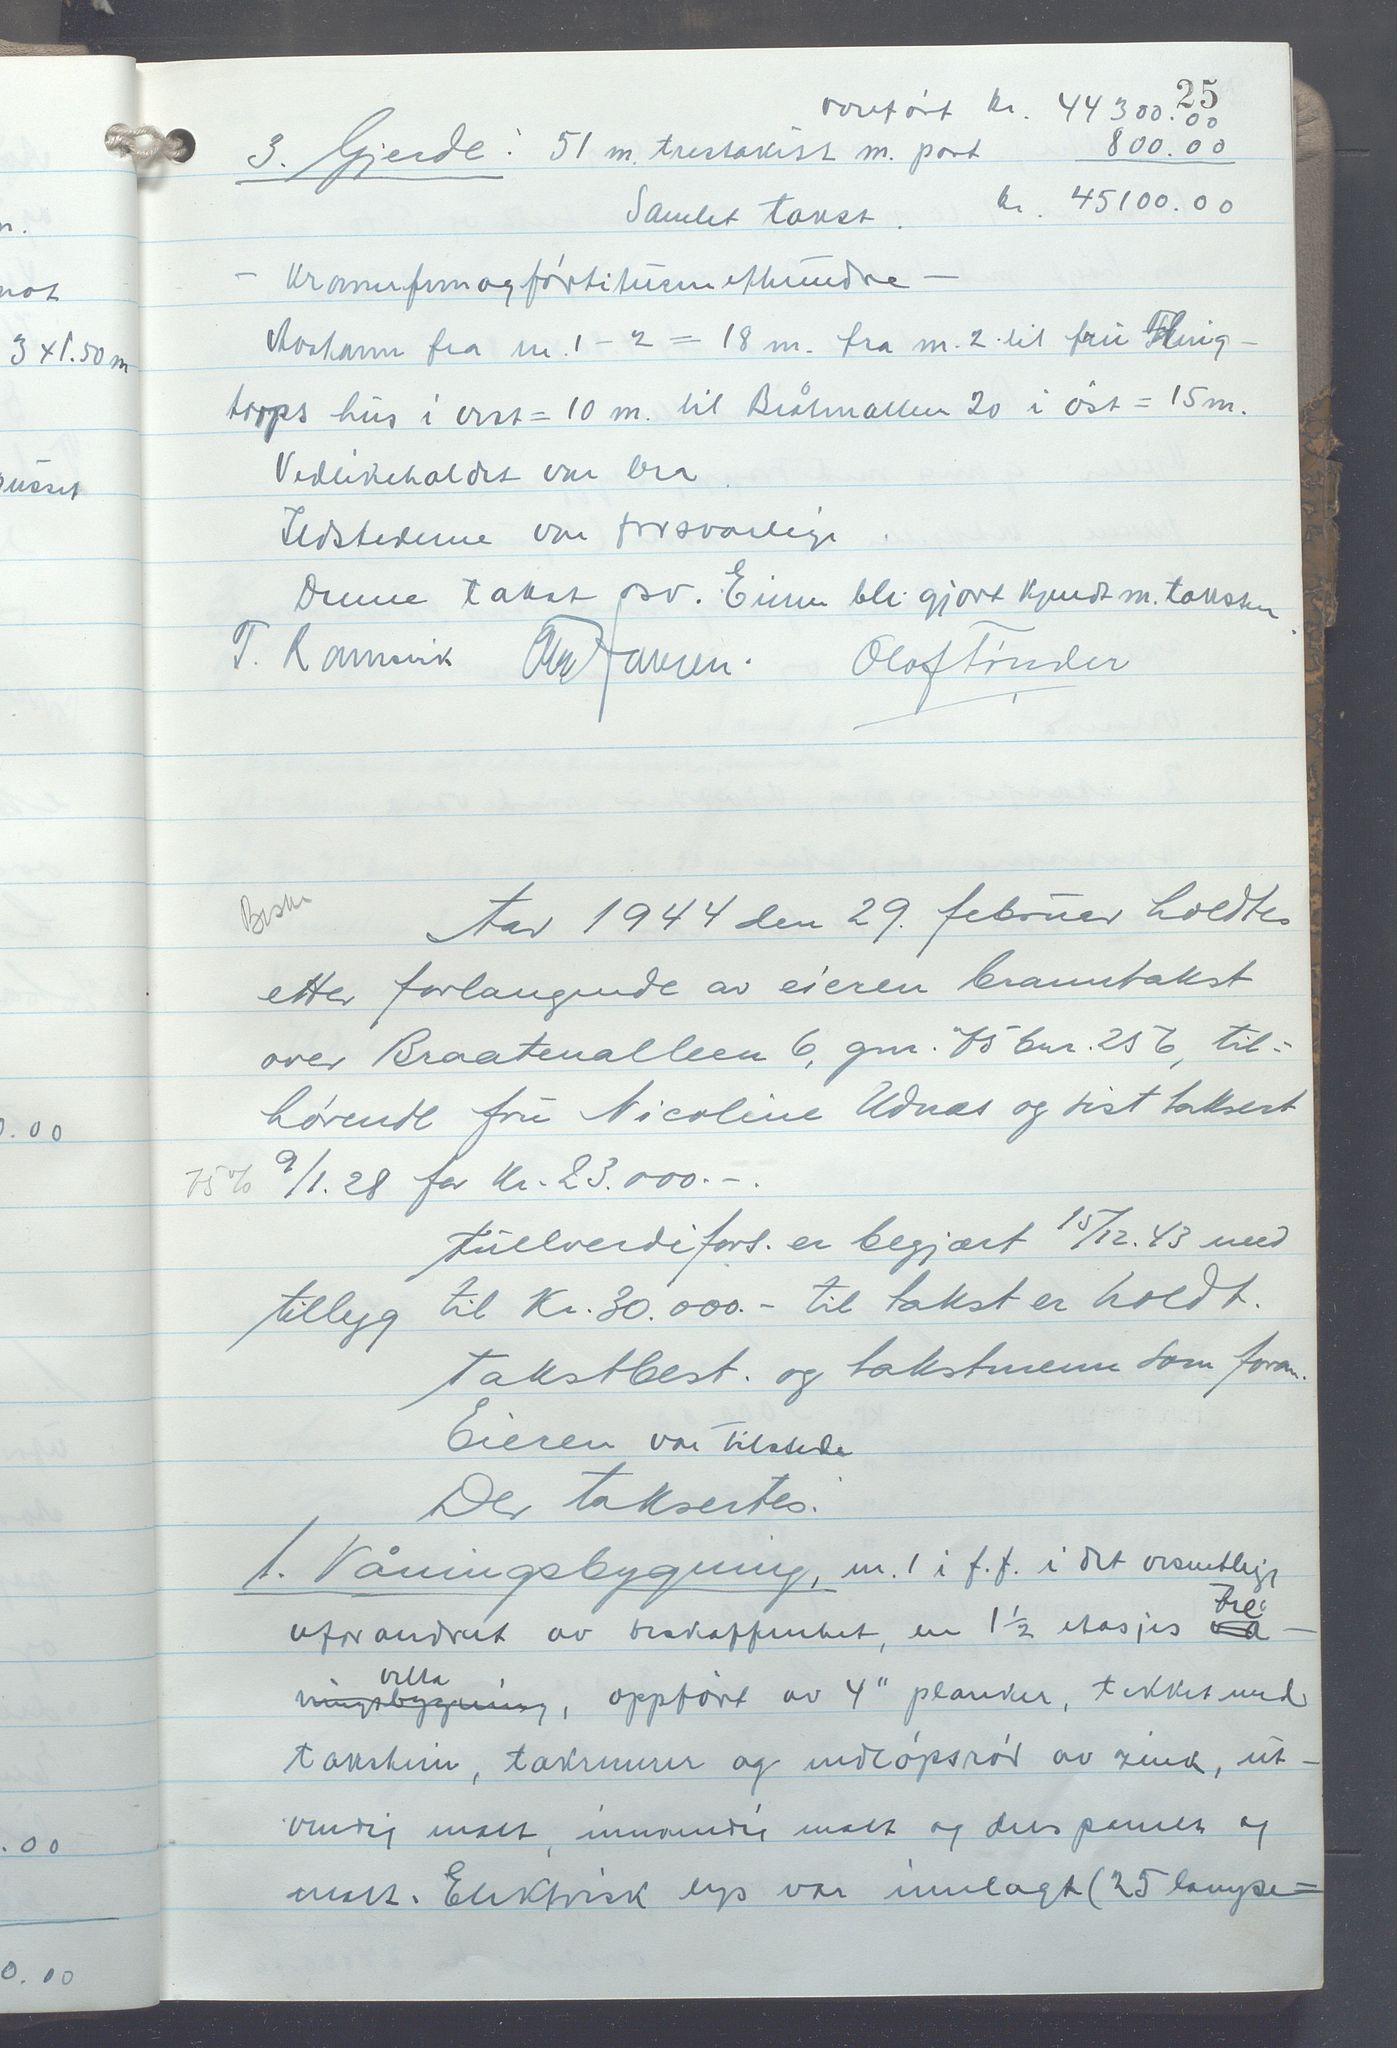 25
overført kr. 44300.00
3. Gjerde: 51 m. trestakitt m. port 800.00
Samlet takst. kr. 45100.00
- Kronerfemogførtitusenetthundre -
Avstann fra nr. 1 - 2 = 18 m. fra nr. 2 til fru
trops hus i vest = 10 m. til Bråtenalleen 20 i øst = 15 m.
Vedlikeholdet var bra.
Ildstederne var forsvarlige.
Denne takst osv. Eieren ble gjort kjendt m. taksten.
T. Ramsvik Jansen. Olaf Tønder
Besku
Aar 1944 den 29. februar holdtes
etter forlangende av eieren branntakst
over Braatenalleen 6, gnr. 75 bnr. 256, til=
hørende fru Nicoline Udnæs og sist taksert
75% 9/1.28 for Kr. 23.000.-.
Fullverdifors. er begjært 15/12.43 med
tillegg til Kr. 30.000.- til takst er holdt.
Takstbest. og takstmenn som foran.
Eieren var tilstede
Der takseertes.
1. Våningsbygning, nr. 1 i f.f. i det vesentlige
uforandret av beskaffenhet, en 1½ etasjes tre vå-
villa
ningsbygning, oppført av 4" planker, tekket med
takstein, takrenner og nedløpsrør av zink, ut-
vendig malt, innvendig malt og dels panelt og
malt. Elektrisk lys var innlagt (25 lampe=
m.
3 x 1.50 m
pusset
0.00
.00
0.00